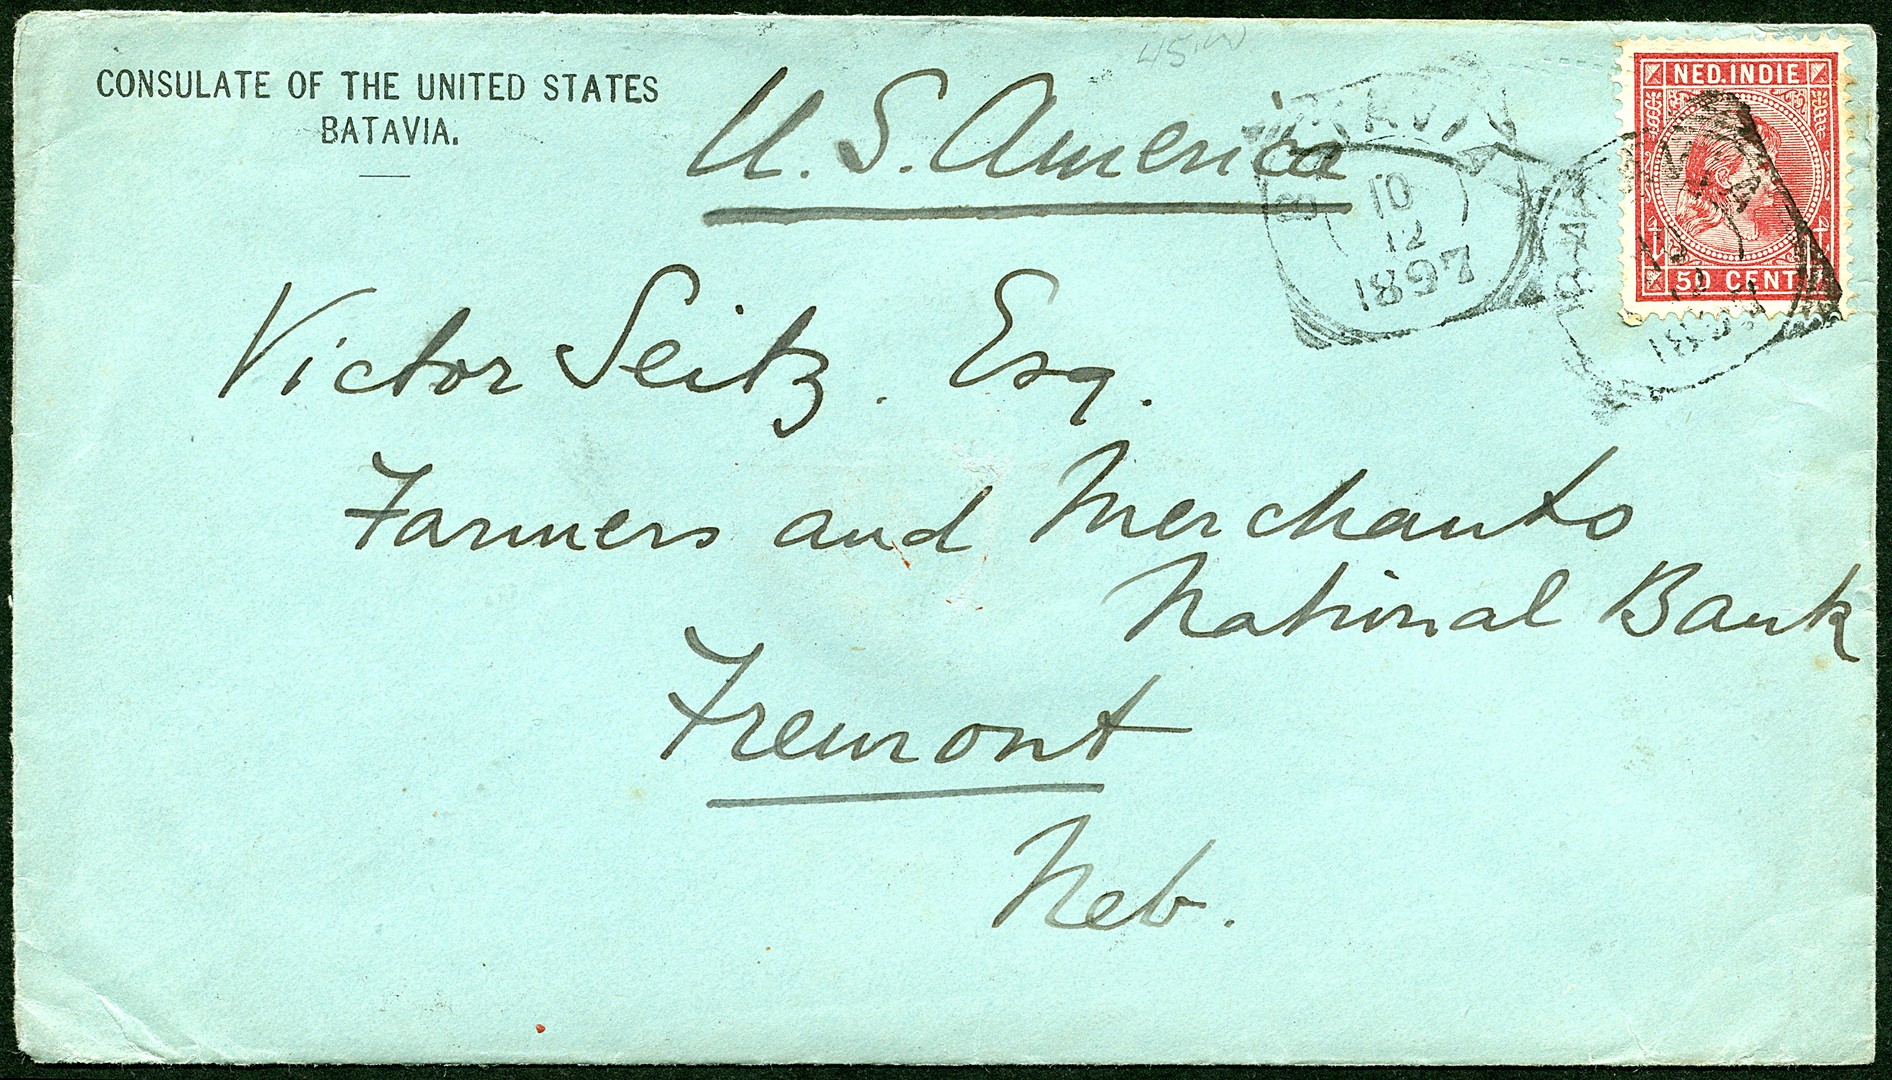 CONSULATE OF THE UNITED STATES
BATAVIA.
45.00
U.S. America
BATAVIA
10
12
1897
NED. INDIE
50 CENT
Victor Seitz. Esq.
Farmers and Merchants
National Bank
Fremont
Neb.